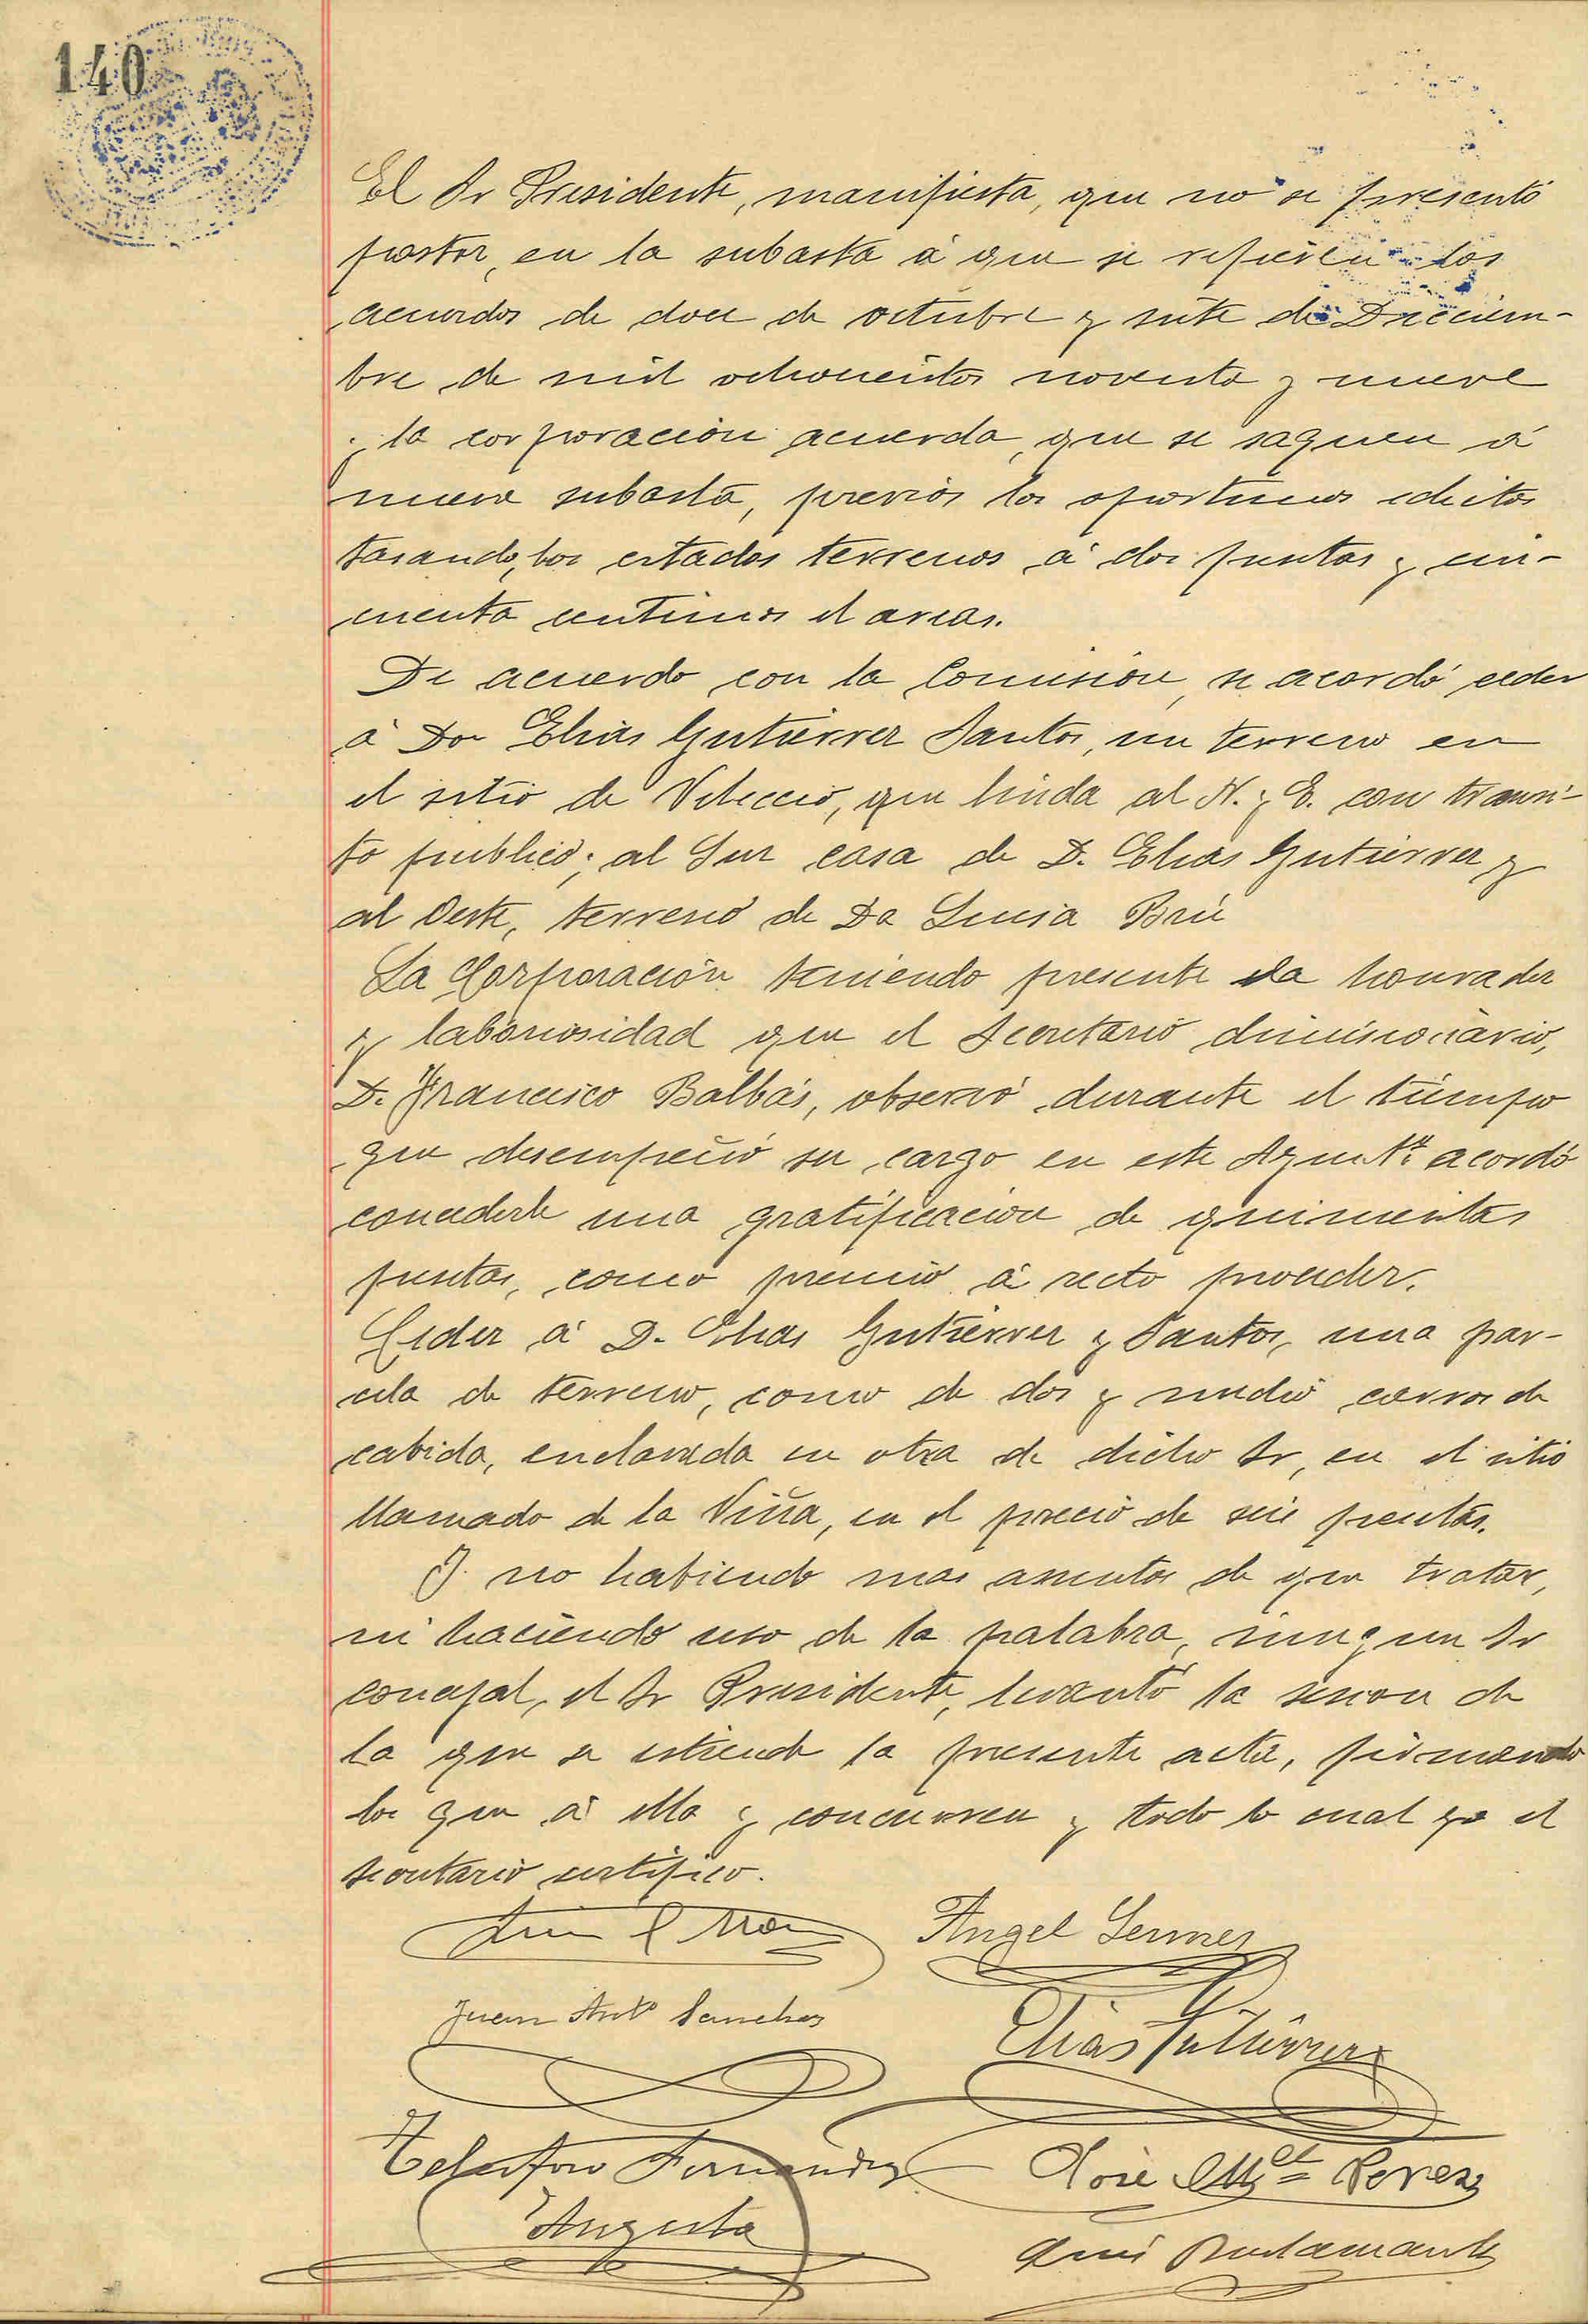 140
El Sr Presidente, manifiesta, que no se presentó
postor, en la subasta á que se refieren los
acuerdos de doce de octubre y siete de Diciem-
bre de mil ochocientos noventa y nueve
y la corporación acuerda, que se saquen á
nueva subasta, previos los oportunos edictos
tasando, los citados terrenos á dos pesetas y cin-
cuenta centimos el areas.
De acuerdo con la Comisión, se acordó ceder
á Don Elias Gutierrez Santos, un terreno en
el sitio de, que linda al N. y E. con transi-
to publico; al Sur casa de D. Elias Gutierrez y
al Oeste, terreno de Da Luisa Brú
La Corporación teniendo presente la honradez
y laboriosidad que el Secretario dimisionario,
D. Francisco Balbás, observó durante el tiempo
que desempeñó su cargo en este Ayunto acordó
concederle una gratificacion de quinientas
pesetas, como premio á recto proceder.
Ceder á D. Elias Gutierrez y Santos, una par-
cela de terreno, como de dos y medio carros de
cabida, enclavada en otra de dicho Sr, en el sitio
llamado de la Viña, en el precio de seis pesetas.
Y no habiendo mas asuntos de que tratar,
ni haciendo uso de la palabra, ningun Sr
concejal, el Sr Presidente, levantó la sesion de
la que se estiende la presente acta, firmando
los que á ella y concurren y todo lo cual yo el
secretario certifico.
Angel Lermes
Juan Anto Sanchez
Elias Gutierrez
Telesforo Fernandez
José Ml Perez
Augusto
Luis Bustamante